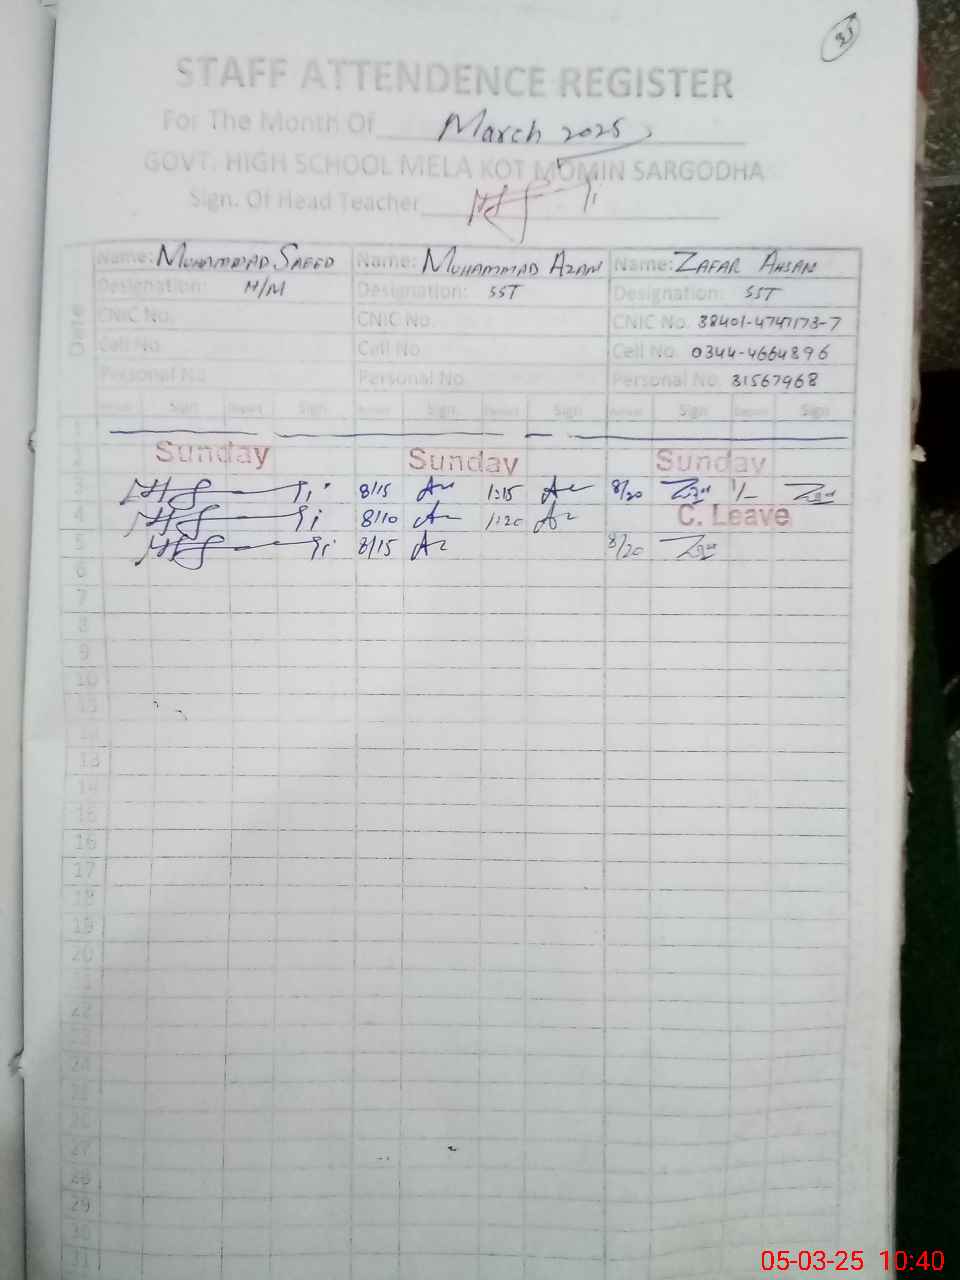 31
STAFF ATTENDENCE REGISTER
For The Month Of March 2025
GOVT. HIGH SCHOOL MELA KOT MOMIN SARGODHA
Sign. Of Head Teacher
Name: MUHAMMAD SAEED Name: MUHAMMAD AZAM Name: ZAFAR AHSAN
Designation: H/M Designation: SST Designation: SST
CNIC No. CNIC No. CNIC No. 38401-4747173-7
Cell No. Cell No. Cell No. 0344-4664896
Personal No. Personal No. Personal No. 31567968
Sign Sign Sign Sign Sign Sign
1
2 Sunday Sunday Sunday
3 8/15 1:15 8/20 1/-
4 8/10 1:20 C. Leave
5 8/15 8/20
6
7
8
9
10
11
12
13
14
15
16
17
18
19
20
21
22
23
24
25
26
27
28
29
30
31
05-03-25 10:40